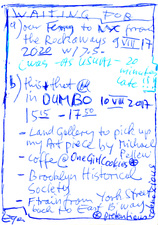 WAITING FOR
a) our Ferry to NYC from
the Rockaways 9 VIII 17
2020 w/ 75.
(was - AS USUAL - 20
minutes
late!!)
b) this + that @
in DUMBO 10 VIII 2017
15:15 - 17:50
- Land Gallery to pick up
my Art piece by Michael
Pellew
- coffee @ One Girl Cookies
- Brooklyn Historical
Society
- F train from York Street
back to East B'way